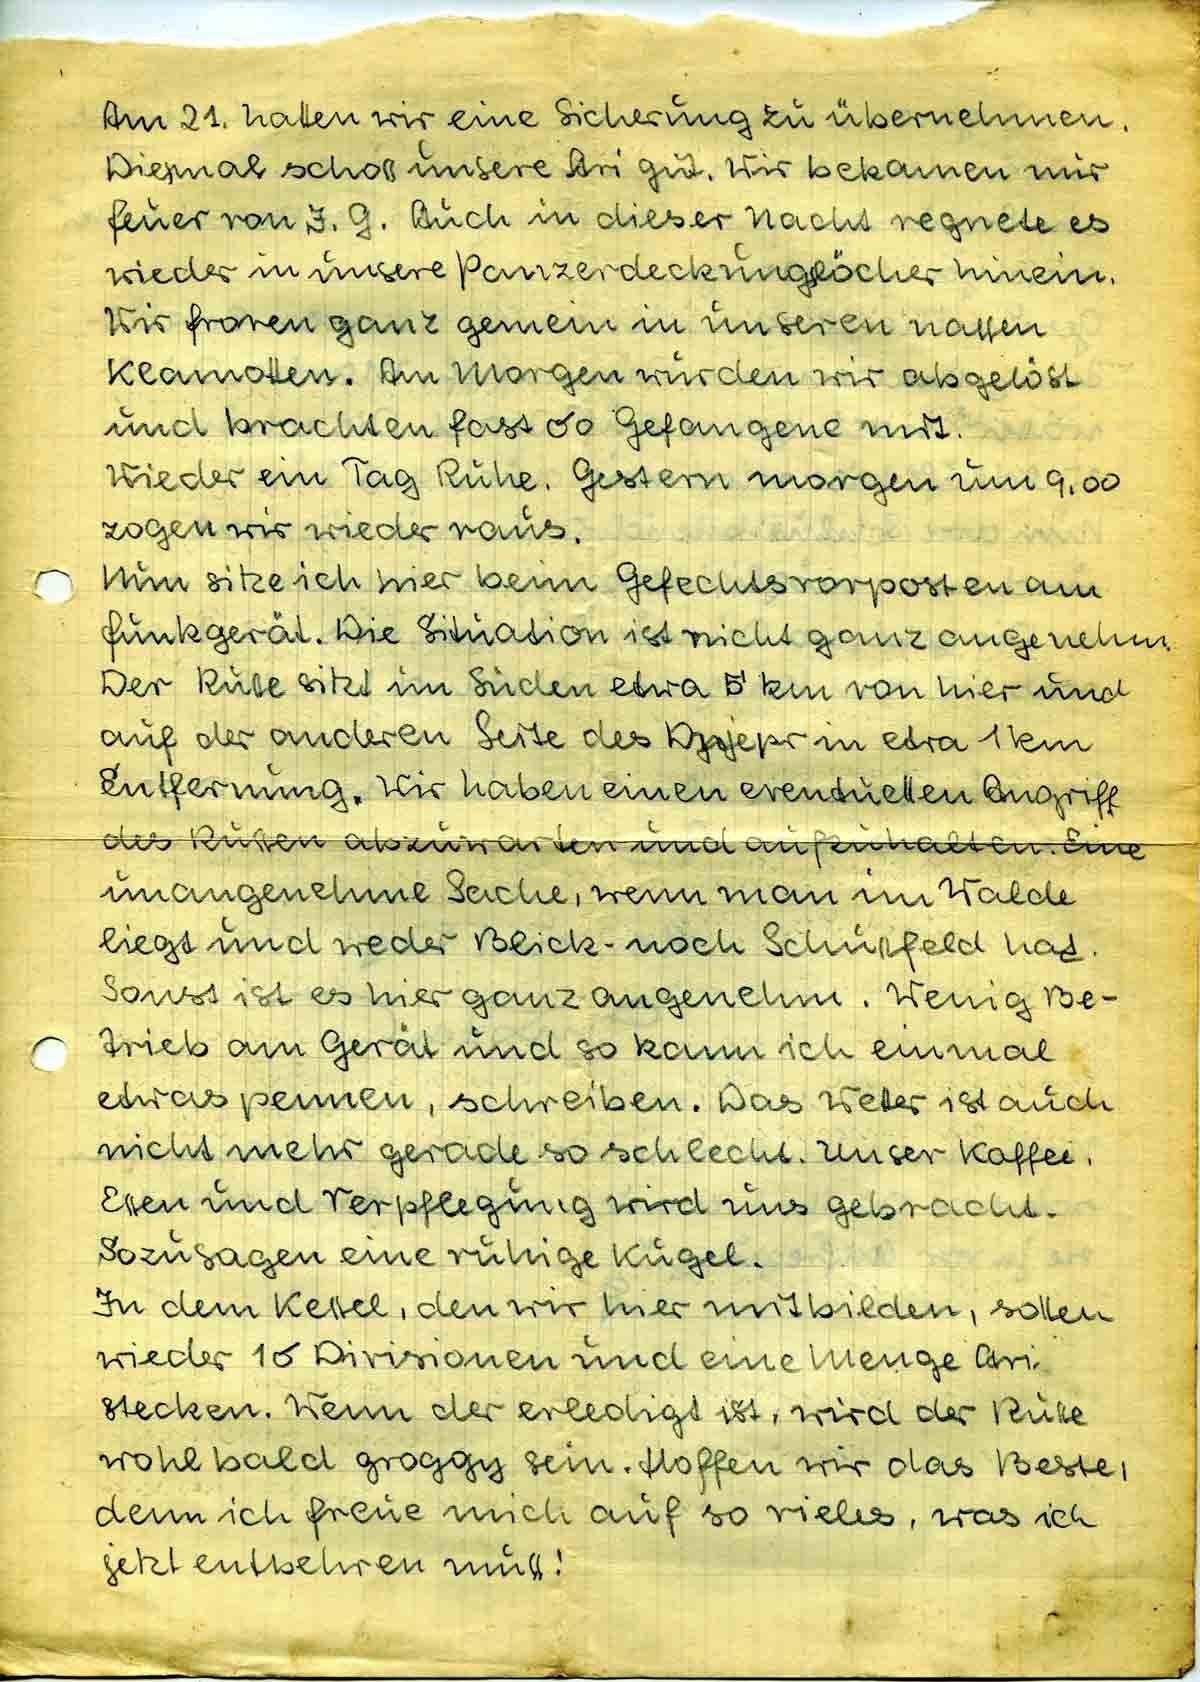 Am 21. hatten wir eine Sicherung zu übernehmen.
Diesmal schoß unsere Ari gut. Wir bekamen nur
feuer von J. G. Auch in dieser Nacht regnete es
wieder in unsere Panzerdeckungslöcher hinein.
Wir froren ganz gemein in unseren nassen
Klamotten. Am Morgen wurden wir abgelöst
und brachten fast 60 Gefangene mit.
Wieder ein Tag Ruhe. Gestern morgen um 9.00
zogen wir wieder raus.
Nun sitze ich hier beim Gefechtsvorposten am
funkgerät. Die Situation ist nicht ganz angenehm.
Der Russe sitzt im Süden etwa 5 km von hier und
auf der anderen Seite des Dnjepr in etra 1 km
Entfernung. Wir haben einen eventuellen Angriff
des Russen abzuwarten und aufzuhalten. Eine
unangenehme Sache, wenn man im Walde
liegt und weder Blick- noch Schußfeld hat.
Sonst ist es hier ganz angenehm. Wenig Be-
trieb am Gerät und so kann ich einmal
etwas pennen, schreiben. Das Wetter ist auch
nicht mehr gerade so schlecht. Unser Kaffee,
Essen und Verpflegung wird uns gebracht.
Sozusagen eine ruhige Kugel.
In dem Kessel, den wir hier mitbilden, sollen
wieder 16 Divisionen und eine Menge Ari.
stecken. Wenn der erledigt ist, wird der Russe
wohl bald groggy sein. Hoffen wir das Beste,
denn ich freue mich auf so vieles, was ich
jetzt entbehren muß!